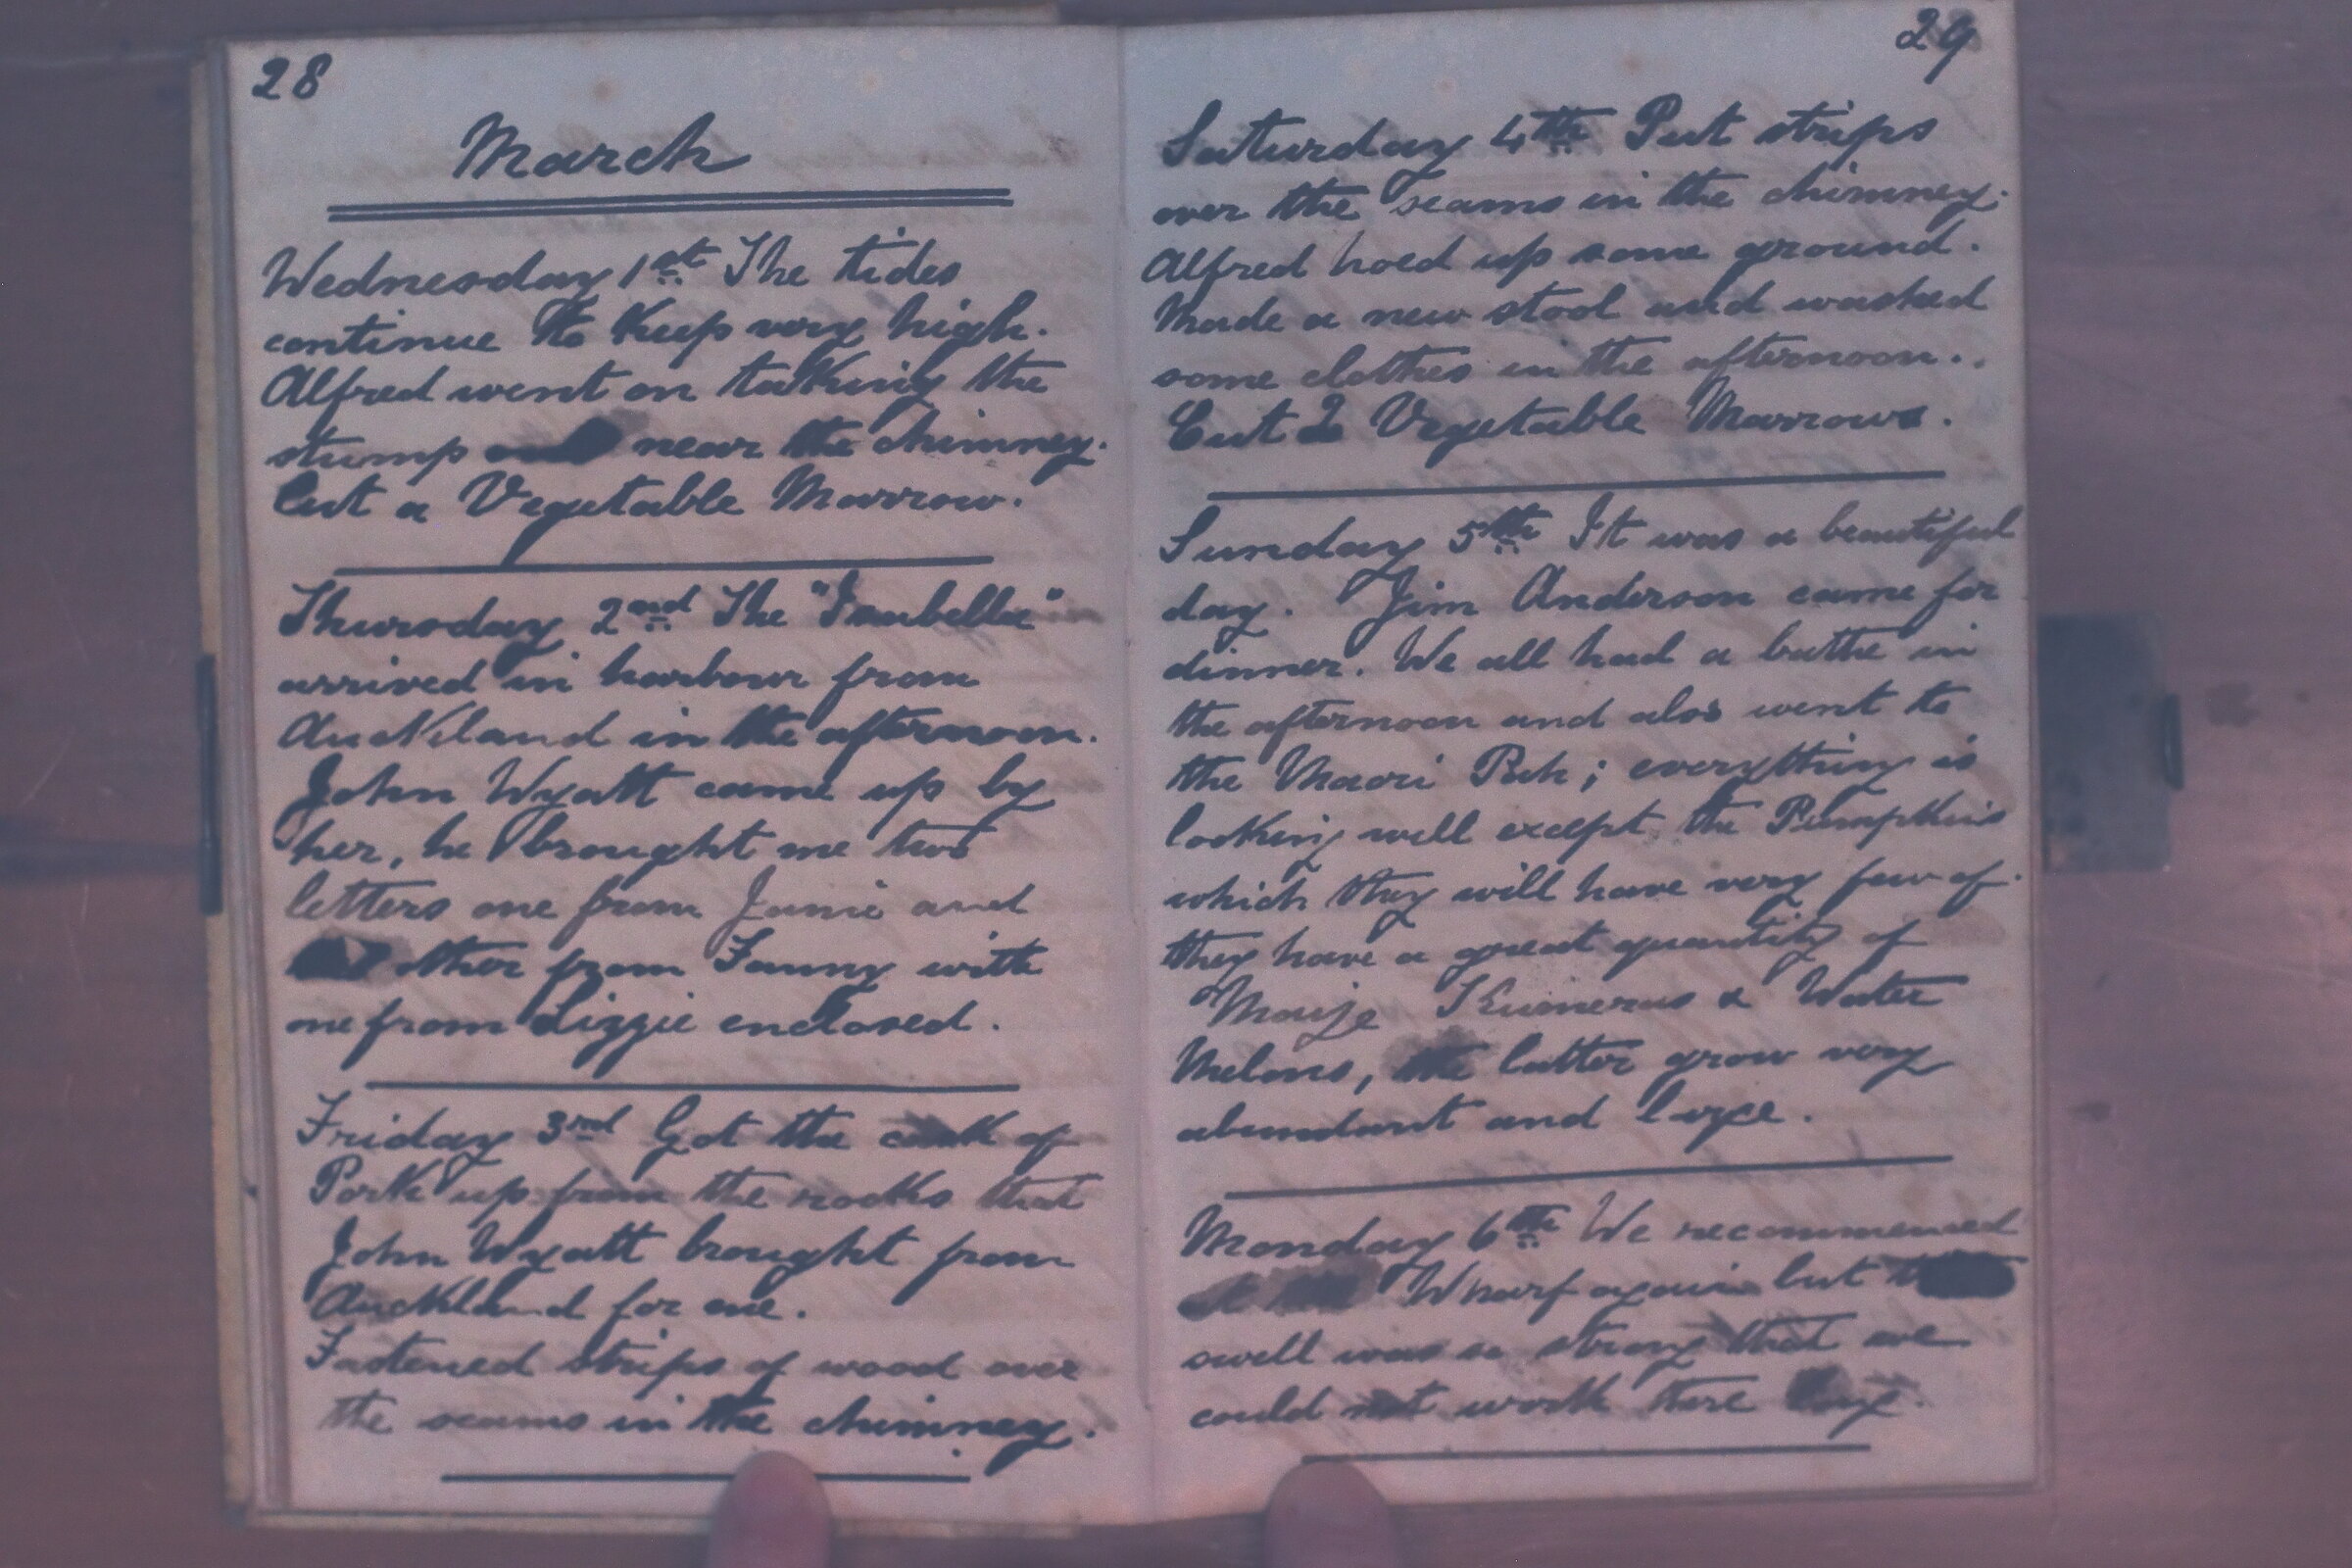 28
March
Wednesday 1st The tides
continue to keep very high.
Alfred went on talking the
stump near the chimney.
Cut a Vegetable Marrow.
Thursday 2nd The "Isabella"
arrived in harbour from
Auckland in the afternoon.
John Wyatt came up by
her, he brought me two
letters one from Janie and
other from Fanny with
one from Lizzie enclosed.
Friday 3rd Got the cask of
Pork up from the rocks that
John Wyatt brought from
Auckland for me.
Fastened strips of wood over
the seams in the chimney.
29
Saturday 4th Put strips
over the seams in the chimney.
Alfred hoed up some ground.
Made a new stool and washed
some clothes in the afternoon.
Cut 2 Vegetable Marrows.
Sunday 5th It was a beautiful
day. Jim Anderson came for
dinner. We all had a bathe in
the afternoon and also went to
the Maori Pah; everything is
looking well except the Pumpkins
which they will have very few of.
they have a great quantity of
Maize Kumeras & Water
Melons, the latter grow very
abundant and large.
Monday 6th We recommenced
Wharf again but
swell was so strong that we
could not work there long.